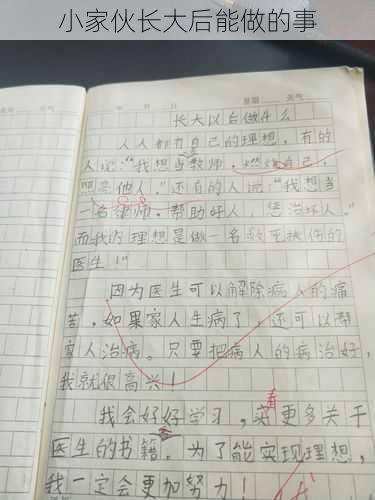 小家伙长大后能做的事
星期 天气
长大以后做什么
人人都有自己的理想，有的
人说：“我想当教师，燃烧自己，
照亮他人。”还有的人说：“我想当
一名律师，帮助好人，惩治坏人。”
而我的理想是做一名救死扶伤的
医生！”
因为医生可以解除病人的痛
苦，如果家人生病了，还可以帮
家人治病。只要把病人的病治好，
我就很高兴！
我会好好学习，看更多关于
医生的书籍。为了能实现理想，
我一定会更加努力！